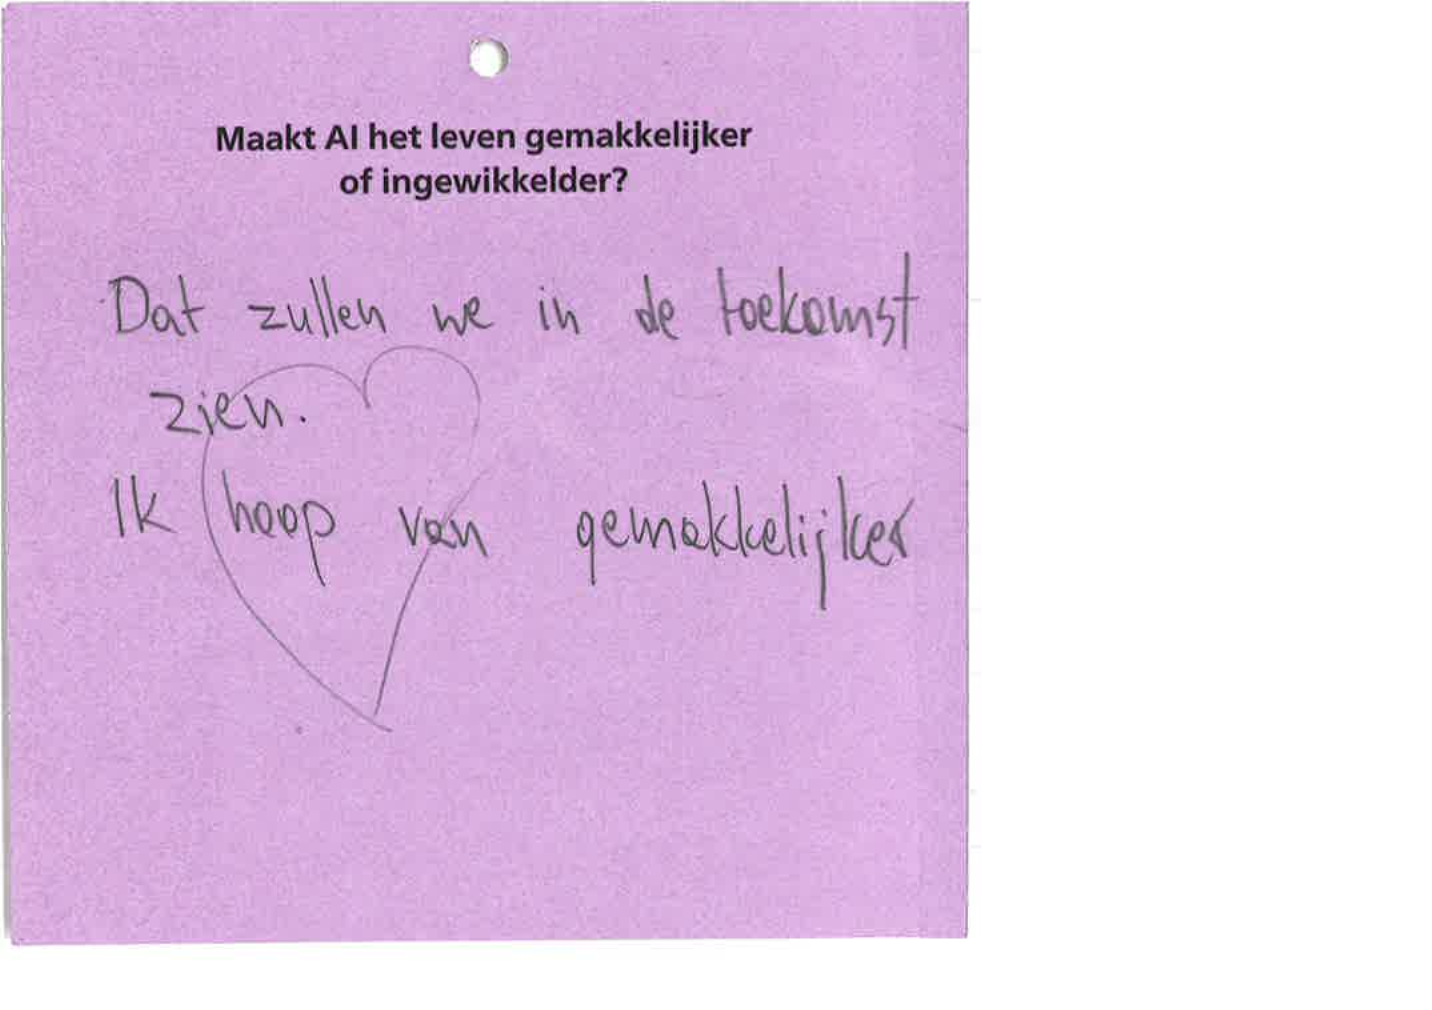 Maakt AI het leven gemakkelijker
of ingewikkelder?
Dat zullen we in de toekomst
zien.
Ik hoop van gemakkelijker